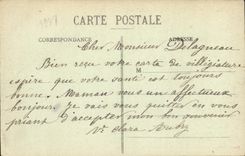 CARTE POSTALE
CORRESPONDANCE
ADRESSE
Cher Monsieur Delagneau
Bien reçu votre carte de villégiature
M
espère que votre santé est toujours
bonne. Maman vous envoie affectueux
bonjour. Je vais vous quitter en vous
priant d'accepter mon bon souvenir
Clara